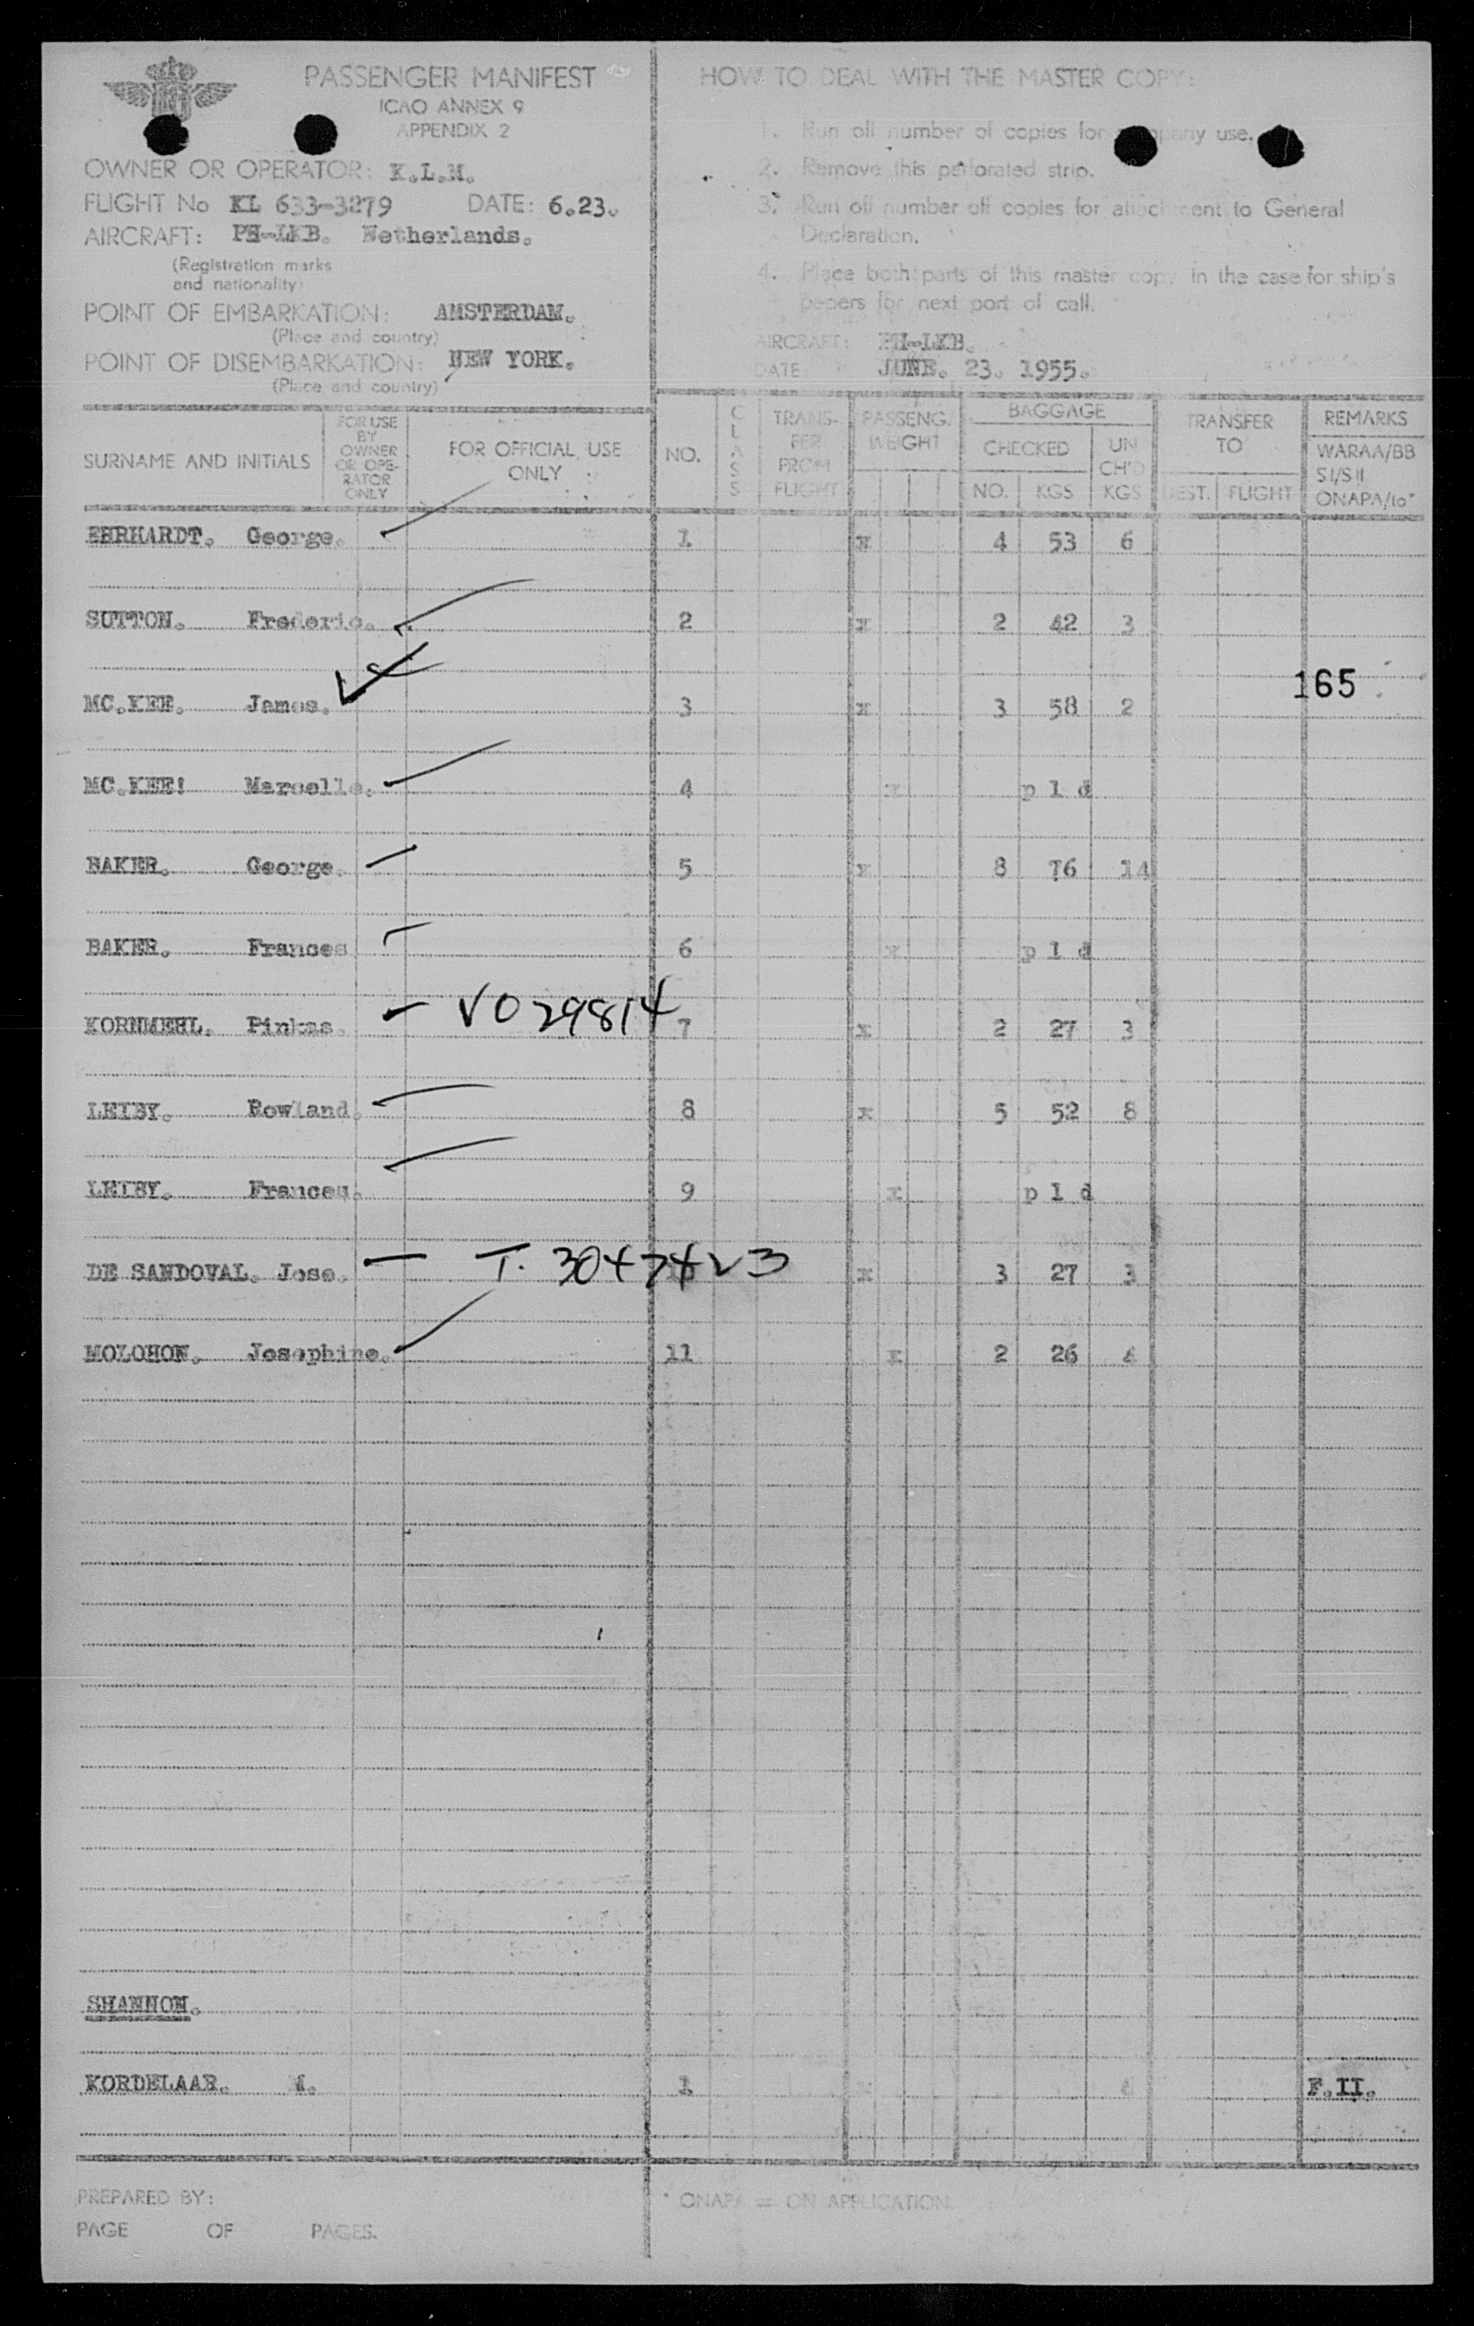 PASSENGER MANIFEST
ICAO ANNEX 9
APPENDIX 2
OWNER OR OPERATOR: K.L.M.
FLIGHT No KL 633-3279 DATE: 6.23.
AIRCRAFT: PH-LKB. Netherlands.
(Registration marks
and nationality)
POINT OF EMBARKATION: AMSTERDAM.
(Place and country)
POINT OF DISEMBARKATION: NEW YORK.
(Place and country)
HOW TO DEAL WITH THE MASTER COPY:
1. Run off number of copies for company use.
2. Remove this perforated strip.
3. Run off number off copies for attachment to General
Declaration.
4. Place both parts of this master copy in the case for ship's
papers for next port of call.
AIRCRAFT: PH-LKB.
DATE JUNE. 23. 1955.
SURNAME AND INITIALS
FOR USE
BY
OWNER
OR OPE-
RATOR
ONLY
FOR OFFICIAL USE
ONLY
NO.
CLASS
TRANS-
FER
FROM
FLIGHT
PASSENG.
WEIGHT
BAGGAGE
CHECKED
NO. KGS
UN
CH'D
KGS
TRANSFER
TO
DEST. FLIGHT
REMARKS
WARAA/BB
SI/SII
ONAPA/to*
EHRHARDT. George. 1 x 4 53 6
SUTTON. Frederic. 2 x 2 42 3
165
MC.KEE. James. 3 x 3 58 2
MC.KEE! Marcelle. 4 x p l d
BAKER. George. 5 x 8 76 14
BAKER. Frances 6 x p l d
KORNMEHL. Pinkas. V029814 7 x 2 27 3
LEIBY. Rowland. 8 x 5 52 8
LEIBY. Frances. 9 x p l d
DE SANDOVAL. Jose. T. 3047423 x 3 27 3
MOLOHON. Josephine. 11 x 2 26 4
SHANNON.
KORDELAAR. 1 F.II.
PREPARED BY:
PAGE OF PAGES.
* ONAPA = ON APPLICATION.